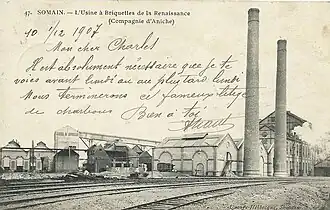 47. SOMAIN. — L'Usine à Briquettes de la Renaissance
(Compagnie d'Aniche)
10 1/12 1907
Mon cher Charlet
Il est absolument nécessaire que je te
voies avant lundi au plus tard lundi
Nous terminerons ce fameux
de charbons Bien à toi